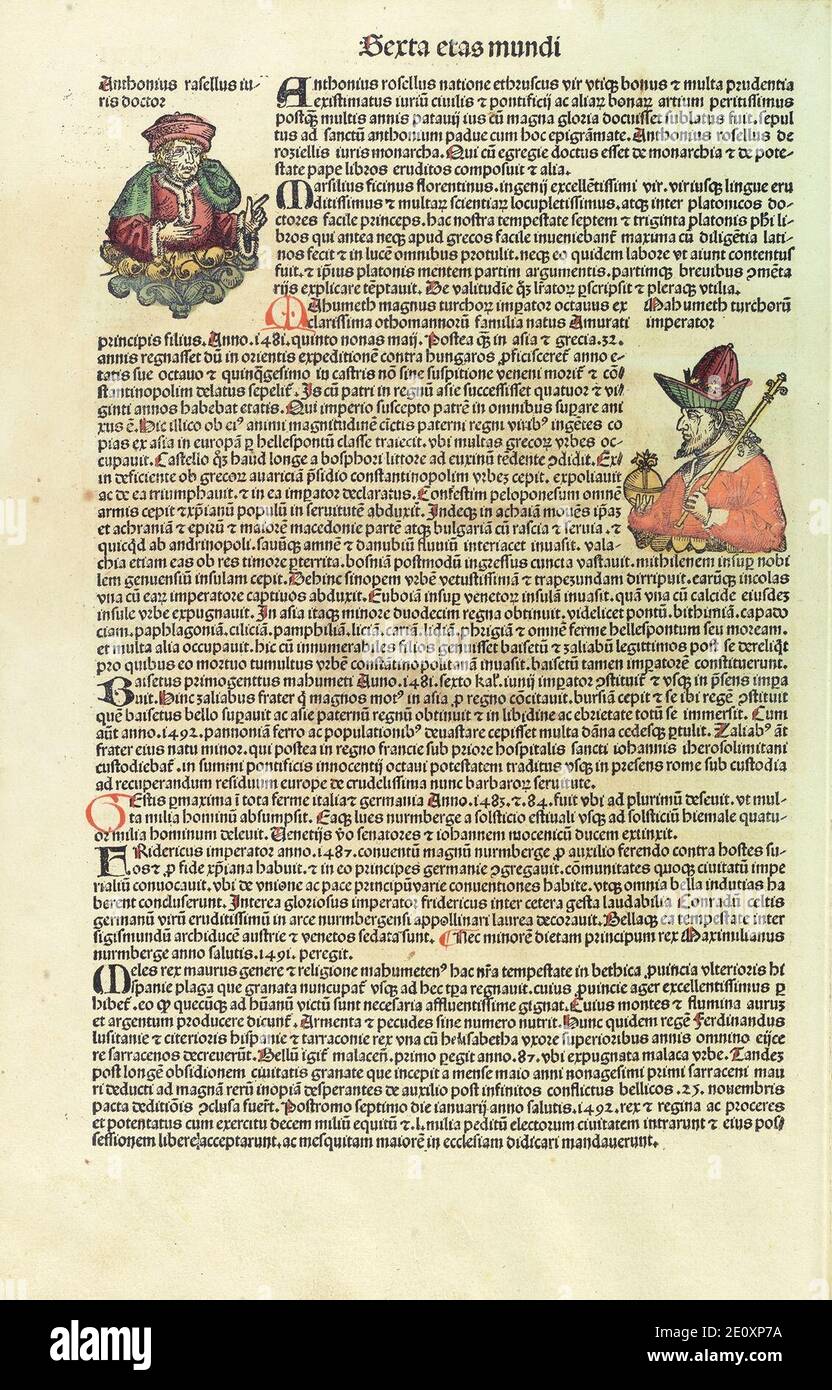 Sexta etas mundi
Anthonius rasellus iu-
ris doctor
Anthonius rosellus natione ethruscus vir vtiqꝫ bonus ⁊ multa prudentia
existimatus iuriũ ciuilis ⁊ pontificij ac aliaꝝ bonaꝝ artium peritissimus
postqꝫ multis annis patauij ius cũ magna gloria docuisset sublatus fuit. sepul
tus ad sanctũ anthonium padue cum hoc epigrãmate. Anthonius rosellus de
roziellis iuris monarcha. Qui cũ egregie doctus esset de monarchia ⁊ de pote-
state pape libros eruditos composuit ⁊ alia.
Marsilius ficinus florentinus. ingenij excellẽtissimi vir. vtriusqꝫ lingue eru
ditissimus ⁊ multaꝝ scientiaꝝ locupletissimus. atqꝫ inter platonicos do-
ctores facile princeps. hac nostra tempestate septem ⁊ triginta platonis phi li-
bros qui antea neqꝫ apud grecos facile inueniebant maxima cũ diligẽtia lati-
nos fecit ⁊ in lucẽ omnibus protulit. neqꝫ eo quidem labore vt aiunt contentus
fuit. ⁊ ip̃ius platonis mentem partim argumentis. partimqꝫ breuibus cõmẽta
rijs explicare tẽptauit. De valitudie qꝫ lr̃atoꝝ ꝑscripsit ⁊ pleraqꝫ vtilia.
Mahumeth magnus turchoꝝ imꝑator octauus ex
clarissima othomannoꝝ familia natus Amurati
Mahumeth turchorũ
imperator
principis filius. Anno .1481. quinto nonas maij. Postea qꝫ in asia ⁊ grecia .32.
annis regnasset dũ in orientis expeditionẽ contra hungaros ꝓficisceret anno e-
tatis sue octauo ⁊ quinqꝫgesimo in castris nõ sine suspitione veneni morit ⁊ cõ-
stantinopolim delatus sepelit. Is cũ patri in regnũ asie successisset quatuor ⁊ vi-
ginti annos habebat etatis. Qui imperio suscepto patrẽ in omnibus suꝑare ani
xus ẽ. Hic illico ob ei⁹ animi magnitudinẽ cũctis paterni regni virib⁹ ingẽtes co
pias ex asia in europã ꝑ hellespontũ classe traiecit. vbi multas grecoꝝ vrbes oc-
cupauit. Castello qꝫ haud longe a bosphori littore ad euxinũ tẽdente ꝯdidit. Ex-
in deficiente ob grecoꝝ auariciã p̃sidio constantinopolim vrbeꝫ cepit. expoliauit
ac de ea triumphauit. ⁊ in ea imꝑator declaratus. Confestim peloponesum omnẽ
armis cepit ⁊ xp̃ianũ populũ in seruitutẽ abduxit. Indeqꝫ in achaiã mouẽs ip̃aꝫ
et achraniã ⁊ epirũ ⁊ maiorẽ macedonie partẽ atqꝫ bulgariã cũ rascia ⁊ seruia. ⁊
quicqd ab andrinopoli. sauũqꝫ amnẽ ⁊ danubiũ fluuiũ interiacet inuasit. vala-
chia etiam eas ob res timore ꝑterrita. bosniã postmodũ ingressus cuncta vastauit. mithilenem insuꝑ nobi
lem genuensiũ insulam cepit. Dehinc sinopem vrbẽ vetustissimã ⁊ trapezundam dirripuit. earũqꝫ incolas
vna cũ eaꝝ imperatore captiuos abduxit. Euboiã insuꝑ venetoꝝ insulã inuasit. quã vna cũ calcide eiusdeꝫ
insule vrbe expugnauit. In asia itaqꝫ minore duodecim regna obtinuit. videlicet pontũ. bithimiã. capado
ciam. paphlagoniã. ciliciã. pamphiliã. liciã. cariã. lidiã. phrigiã ⁊ omnẽ ferme hellespontum seu moream.
et multa alia occupauit. hic cũ innumerabiles filios genuisset baisetũ ⁊ zaliabũ legittimos post se dereliqt
pro quibus eo mortuo tumultus vrbẽ constantinopolitanã inuasit. baisetũ tamen imꝑatorẽ constituerunt.
Baisetus primogenitus mahumeti Anno .1481. sexto kal. iunij imꝑator ꝯstituit ⁊ vsqꝫ in p̃sens impa
uit. Hinc zaliabus frater q̃ magnos mot⁹ in asia ꝓ regno cõcitauit. bursiã cepit ⁊ se ibi regẽ ꝯstituit
quẽ baisetus bello suꝑauit ac asie paternũ regnũ obtinuit ⁊ in libidine ac ebrietate totũ se immersit. Cum
aũt anno .1492. pannoniã ferro ac populationib⁹ deuastare cepisset multa dãna cedesqꝫ ꝑtulit. Zaliab⁹ ãt
frater eius natu minor. qui postea in regno francie sub priore hospitalis sancti iohannis iherosolimitani
custodiebat. in summi pontificis innocentij octaui potestatem traditus vsqꝫ in presens rome sub custodia
ad recuperandum residuum europe de crudelissima nunc barbaroꝝ seruitute.
Estis ꝑmaxima ĩ tota ferme italia ⁊ germania Anno .1483. ⁊ .84. fuit vbi ad plurimũ deseuit. vt mul-
ta milia hominũ absumpsit. Eaqꝫ lues nurmberge a solsticio estiuali vsqꝫ ad solsticiũ hiemale quatu-
or milia hominum deleuit. Venetijs v̾o senatores ⁊ iohannem mocenicũ ducem extinxit.
FRidericus imperator anno .1487. conuentũ magnũ nurmberge ꝓ auxilio ferendo contra hostes su-
os ⁊ ꝓ fide xp̃iana habuit. ⁊ in eo principes germanie ꝯgregauit. comunitates quoqꝫ ciuitatũ impe
rialiũ conuocauit. vbi de vnione ac pace principũ varie conuentiones habite. vtqꝫ omnia bella indutias ha
berent concluserunt. Interea gloriosus imperator fridericus inter cetera gesta laudabilia Conradũ celtis
germanũ virũ eruditissimũ in arce nurmbergensi appollinari laurea decorauit. Bellaqꝫ ea tempestate inter
sigismundũ archiducẽ austrie ⁊ venetos sedata sunt. Nec minorẽ dietam principum rex Maximilianus
nurmberge anno salutis .1491. peregit.
Meles rex maurus genere ⁊ religione mahumeten⁹ hac nr̃a tempestate in bethica ꝓuincia vlterioris hi
spanie plaga que granata nuncupat vsqꝫ ad hec tꝑa regnauit. cuius ꝓuincie ager excellentissimus ꝑ
hibet. eo ꝙ quecũqꝫ ad hũanũ victũ sunt necesaria affluentissime gignat. Cuius montes ⁊ flumina auruꝫ
et argentum producere dicunt. Armenta ⁊ pecudes sine numero nutrit. Hunc quidem regẽ Ferdinandus
lusitanie ⁊ citerioris hispanie ⁊ tarraconie rex vna cũ helisabetha vxore superioribus annis omnino eijce
re sarracenos decreuerũt. Bellũ igit malacen. primo ꝑegit anno .87. vbi expugnata malaca vrbe. Tandeꝫ
post longẽ obsidionem ciuitatis granate que incepit a mense maio anni nonagesimi primi sarraceni mau
ri deducti ad magnã rerũ inopiã desperantes de auxilio post infinitos conflictus bellicos .25. nouembris
pacta deditiõis ꝯclusa fuer̃t. Postromo septimo die ianuarij anno salutis .1492. rex ⁊ regina ac proceres
et potentatus cum exercitu decem miliũ equitũ ⁊ .l. milia peditũ electorum ciuitatem intrarunt ⁊ eius pos-
sessionem libere acceptarunt. ac mesquitam maiorẽ in ecclesiam didicari mandauerunt.
alamy
Image ID: 2E0XP7A
www.alamy.com